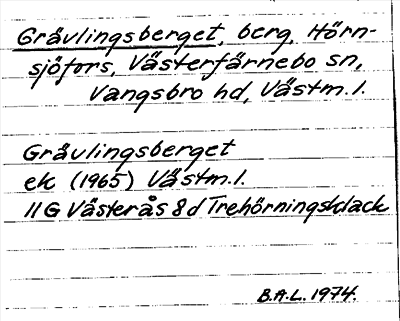 Grävlingsberget, berg, Hörn-
sjöfors, Västerfärnebo sn,
Vangsbro hd, Västm.l.
Grävlingsberget
ek (1965) Västm.l.
11 G Västerås 8 d Trehörningsklack
B.A.L. 1974.